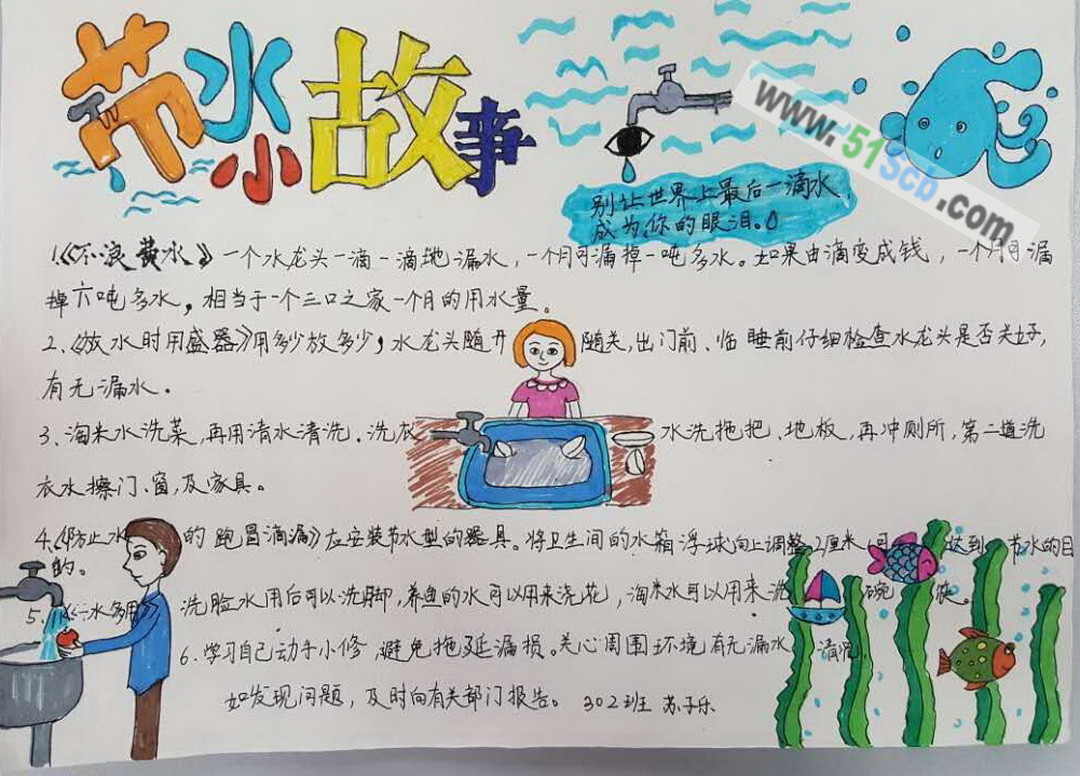 节水小故事
www.51Scb.com
别让世界上最后一滴水
成为你的眼泪。
1.《不浪费水》一个水龙头一滴一滴地漏水，一个月可漏掉一吨多水。如果由滴变成钱，一个月可漏
掉六吨多水，相当于一个三口之家一个月的用水量。
2.《放水时用盛器》用多少放多少，水龙头随开随关，出门前、临睡前仔细检查水龙头是否关好，
有无漏水。
3.淘米水洗菜，再用清水清洗，洗衣水洗拖把、地板，再冲厕所，第二道洗
衣水擦门、窗，及家具。
4.《防止水的跑冒滴漏》应安装节水型的器具。将卫生间的水箱浮球向上调整2厘米，可达到节水的目
的。
5.《一水多用》洗脸水用后可以洗脚，养鱼的水可以用来浇花，淘米水可以用来洗碗筷。
6.学习自己动手小修，避免拖延漏损。关心周围环境有无漏水
如发现问题，及时向有关部门报告。302班 苏子乐